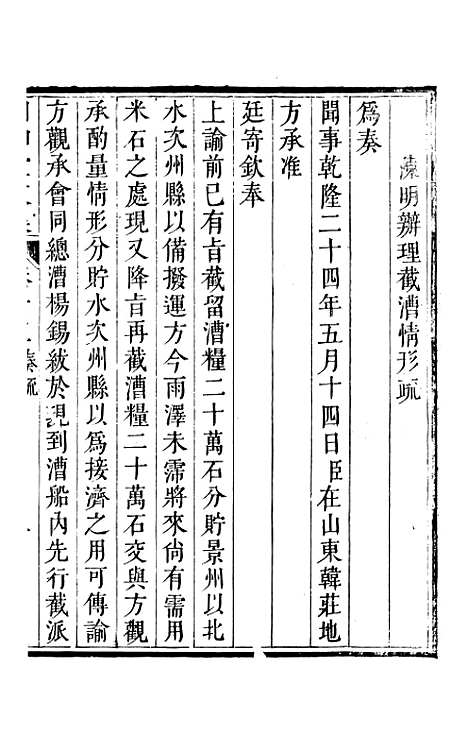 陳明辦理截漕情形疏
爲奏
聞事乾隆二十四年五月十四日臣在山東韓莊地
方承准
廷寄欽奉
上諭前已有旨截留漕糧二十萬石分貯景州以北
水次州縣以備撥運方今雨澤未霈將來尙有需用
米石之處現又降旨再截漕糧二十萬石交與方觀
承酌量情形分貯水次州縣以爲接濟之用可傳諭
方觀承會同總漕楊錫紱於現到漕船內先行截派
奏疏